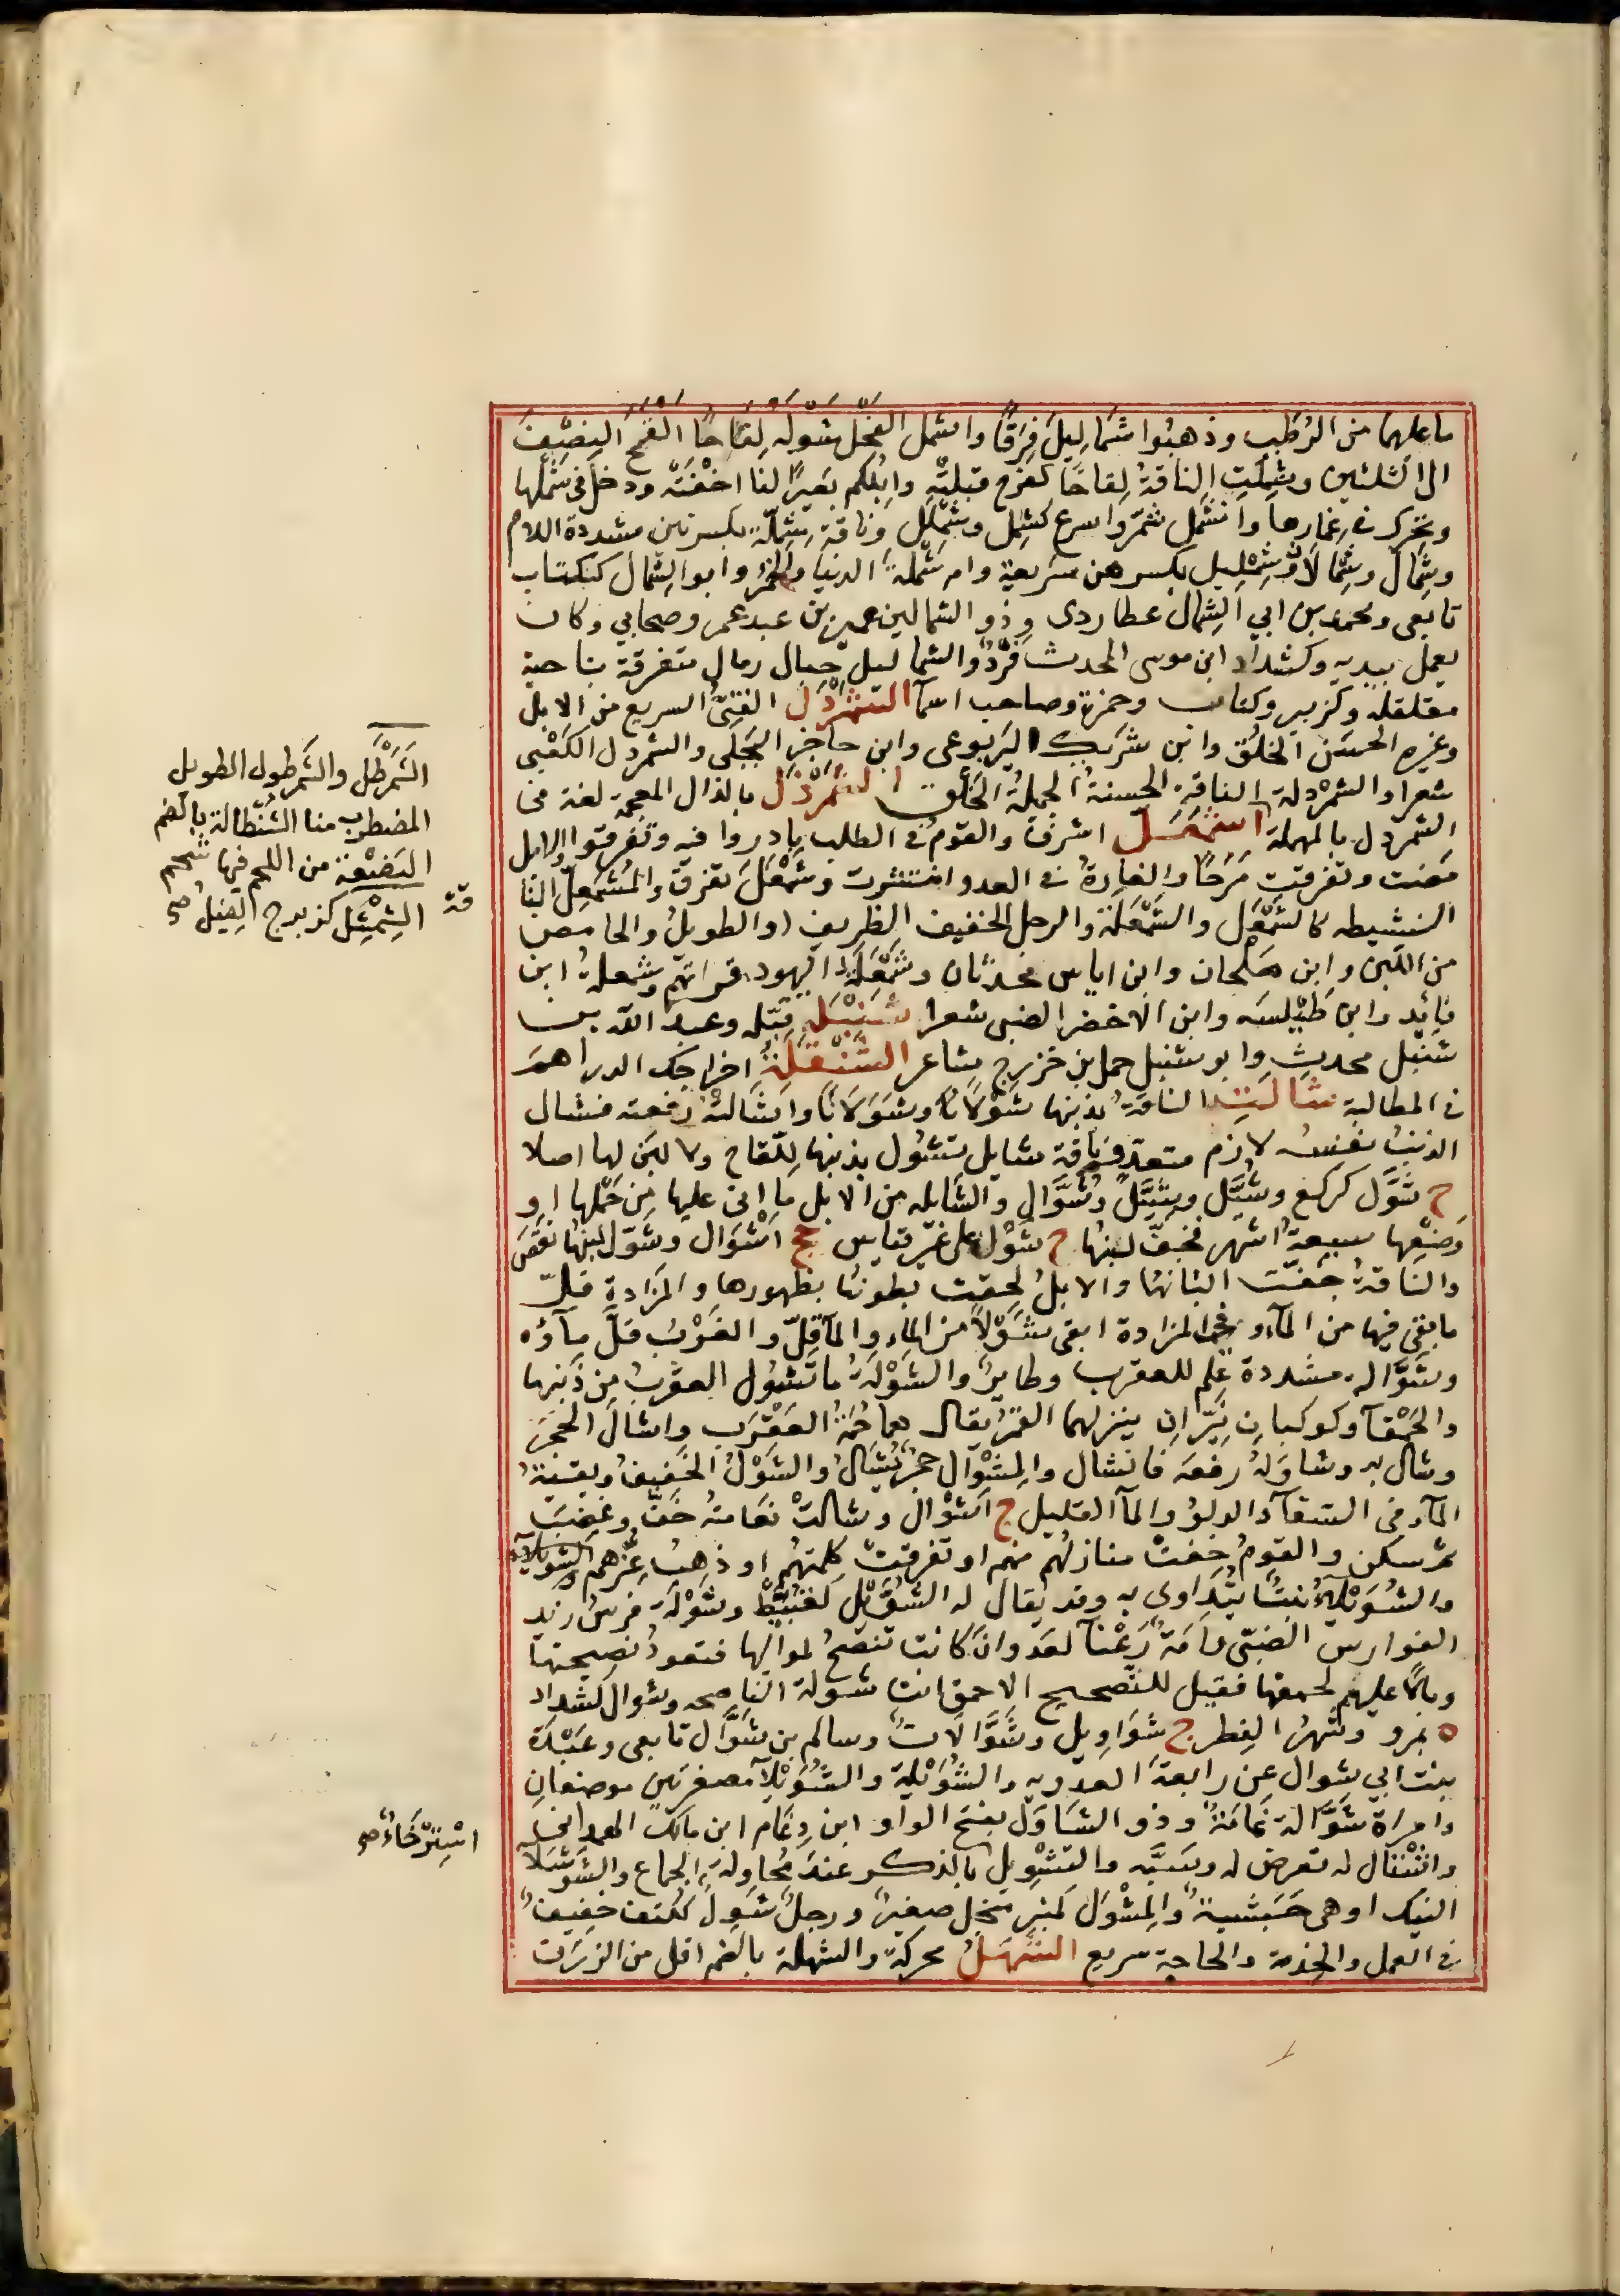 ما عليهما من الرُطَبِ وذهبُوا شَمَالِيلَ فِرَقًا واشمل الفَحْلُ شَوْلَه لِقَاحًا اَلْقَحَ النِصْفَ
الى الثلثين وشَمِلَتِ الناقةُ لِقاحًا كفرِح قبِلتْهُ وابِلُكم بَعيرًا لنا اخْفَتْهُ ودخل فى شَمْلِها
ويحرك فى غِمارها وانشمل شمّر واسرع كشمل وشَمْلَل وناقة شِمِلّة بكسرتين مشددة اللام
وشِمالٌ وشِمْلالٌ وشِمْلِيل بكسرهن سَريعة وام شَمْلَةَ الدنيا والخمر وابو الشِمال ككتاب
تابعى ومحمد بن ابي الشِمال عطاردى وذو الشمالين عمير بن عبد عمرو صحابي وكان
يعمل بيديه وكشداد ابن موسى المحدث فَرْدٌ والشماليل حِبال رمال متفرقة بناحية
معقلة وكزبير وكتاب وحمزة وصاحب اسمآ الشَمَرْدَل الفَتِىّ السريع من الابل
وغيره الحسَن الخلُق وابن شَرِيك اليَربوعى وابن حاجز البَجَلى والشمردل الكَعْبى
شعرا والشمرْدلة الناقة الحسنة الجميلة الخَلْق الشَمَرْذَل بالذال المعجمة لغة فى
الشمردل بالمهملة اشْمَعَلَّ اشرف والقوم فى الطلب بادروا فيه وتفرقوا والابل
مَضت وتفرقت مَرَحًا والغارةُ فى العدو انتشرت وشَمْعَلَ تفرق والمُشْمَعِلّ النا
قة
النشيطه كالشَمْعَل والشَمْعَلة والرجل الخفيف الظريف او الطويلُ والحامض
من اللبن وابن مِلحان وابن اياس محدثان وشَمْعَلَةُ اليهود قراتهم وشمعلةُ ابن
فائِد وابن طَيْلَسه وابن الاخضر الضبى شعرا شَنْبَلَه قبّله وعبد الله بن
شنبل محدث وابو شنبل حمل بن خزرج شاعر الشَنْقَلَةُ اخراجك الدراهمَ
فى المطالبة شالَتِ الناقةُ بذنبها شَوْلًا وشَوَلانًا واشالتْه رفعته فشال
الذنبُ نفسُه لازم متعدٍ وناقة شايل تشُول بذنبها لِلّقاح ولا لبَن لها اصلا
ج شُوَّل كركع وشُيَّل وشِيَّلٌ وشُوَّال والشايله من الابل ما اتى عليها من حَمْلها او
وَضْعِها سبعةُ اشهر فجفّ لبنُها ج شَوْل على غير قياس جج اشْوَال وشَوّل لبنُها نقَصَ
والناقةُ جفّت البانُها والابلُ لحِقت بطونُها بظهورها والمزادة قلّ
ما بقى فيها من المآء وفى المزادة ابقى شَوْلًا من الماء والمآ قلّ والغَرْبُ قلَّ ماؤه
وشَوَّالة مشددة عَلَم للعقرب وطايرٌ والشَوْلَةُ ما تَشُول العقربُ من ذَنبها
والحَمْقآ وكوكبان نَيِّران ينزلهما القمرُ يقال هما حُمَةُ العَقْرَب واشالَ الحجَرَ
وشال به وشاوَلَهُ رفعَه فانشال والمِشْوال حجَرٌ يُشَالُ والشَوْلُ الخَفيفُ وبقيةُ
المآء فى السقآء والدلو والمآ القليل ج اَشْوال وشالَتْ نعَامتُه خَفَّ وغَضِبَ
ثم سكن والقومُ خفّت منازلُهم منهم او تفرقتْ كلمتُهم او ذهب عِزُّهم
والشُوَيْلاءُ نبتٌ يُتداوى به وقد يقال له الشُوَّيْل كقُبَّيْط وشَوْلَة فرسُ زيد
الفوارس الضبّى وامَةٌ رَعْنآ لعدوان كانت تنصَحُ لمواليها فتعود نصيحتها
وبالًا عليهم لحمقها فقيل للنصيح الاحمق انت شولة الناصحه وشوال كشداد
ه بمرو وشهرُ الفِطر ج شَوَاوِيل وشَوَّالاتٌ وسالم بن شَوَّال تابعى وعَبْدَة
بنت ابي شوال عن رابعةَ العدويه والشُوَيْلة والشُوَيْلاء مصغرتين موضعان
وامراة شَوَّالة نمّامةٌ وذو الشَاوَل بفتح الواو ابن دِعَام ابن مالك الهمدانى
واشْتال له تعرض له وسَبَّه والتشْوِيل بالذكر عند مُحاولة الجماع والشَوْشَلآ
النيك او هى حبَشيةٌ والمِشْوَل كمنبر مِنجل صغيرٌ ورجلٌ شَوِلٌ ككتف خفيفٌ
فى العمل والخدمة والحاجة سريع الشَهَلُ محركة والشهلة بالضم اقل من الزرَق
الشَمَرْطَل والشمرطول الطويل
المضطرب منا الشُنْطالة بالضم
البَضْعة من اللحم فيها شحم
الشِمْثِل كزبرج الفيل صح
اسْتِرْخاءٌ صح